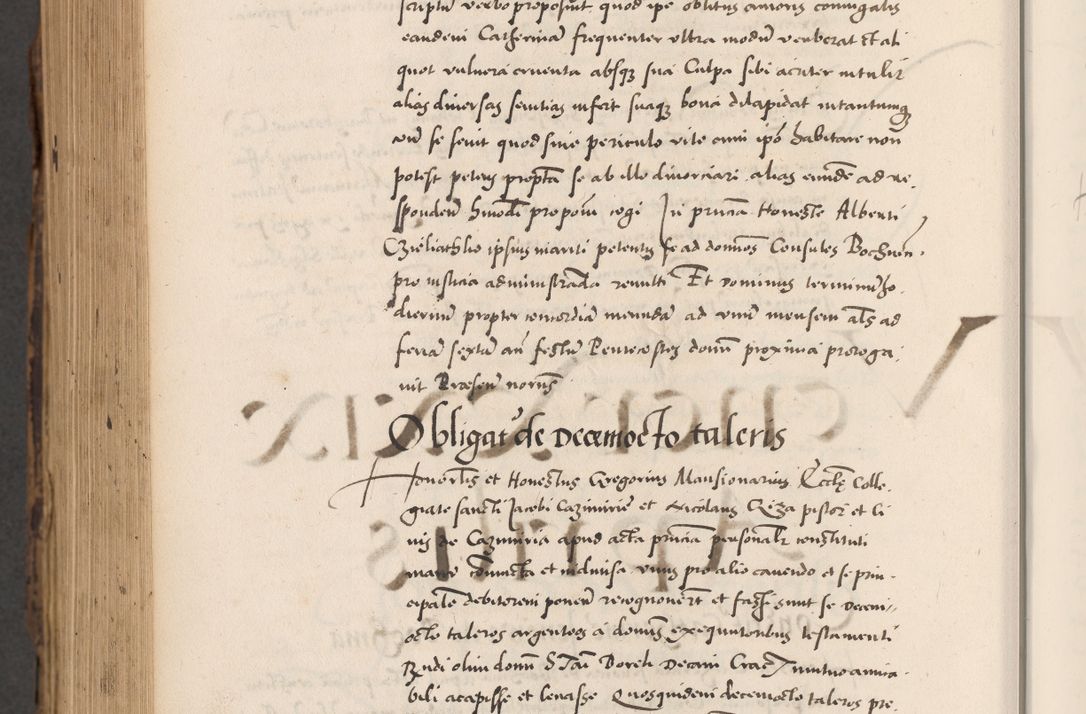 scriptum verbo proposuit quod ipse oblitus amoris coniugalis
eandem Catherinam frequenter ultra modum verberat et ali
quot vulnera cruenta absque sua Culpa sibi acriter intulit
alias diversas sevitias infert suaque bona dilapidat in tantumque
cum se sevit quod sine periculo vite cum ipso habitare non
potest petens propterea se ab illo divorciari alias eundem ad re
spondendum huiusmodi proposit cogi In presencia Honeste Alberti
ipsius mariti petentis se ad dominos Consules Bochnen
pro iusticia administranda remitti Et Dominus terminum ho
diernum propter concordiam ineundam ad unum mensem als ad
feriam sextam ante festum Pentecostes domini proxima proroga
vit Presen notus
Obligat de decemocto taleris
Honorabilis et Honestus Gregorius Mansionarius Ecclesie Colle
giate sancti Jacobi Cazimirie et Nicolaus pistor et Ci
vis de Cazimiria apud acta presencia personaliter constituti
manu coniuncta et indivisa unus pro alio cavendo et se prin
cipalem debitorem ponen recognoverunt et fassi sunt se decem
octo taleros argenteos a dominis exequutoribus testamenti
olim domini Doreli Decani Crac mutuo amica
bili accepisse et levasse Quosquidem decemocto taleros pre